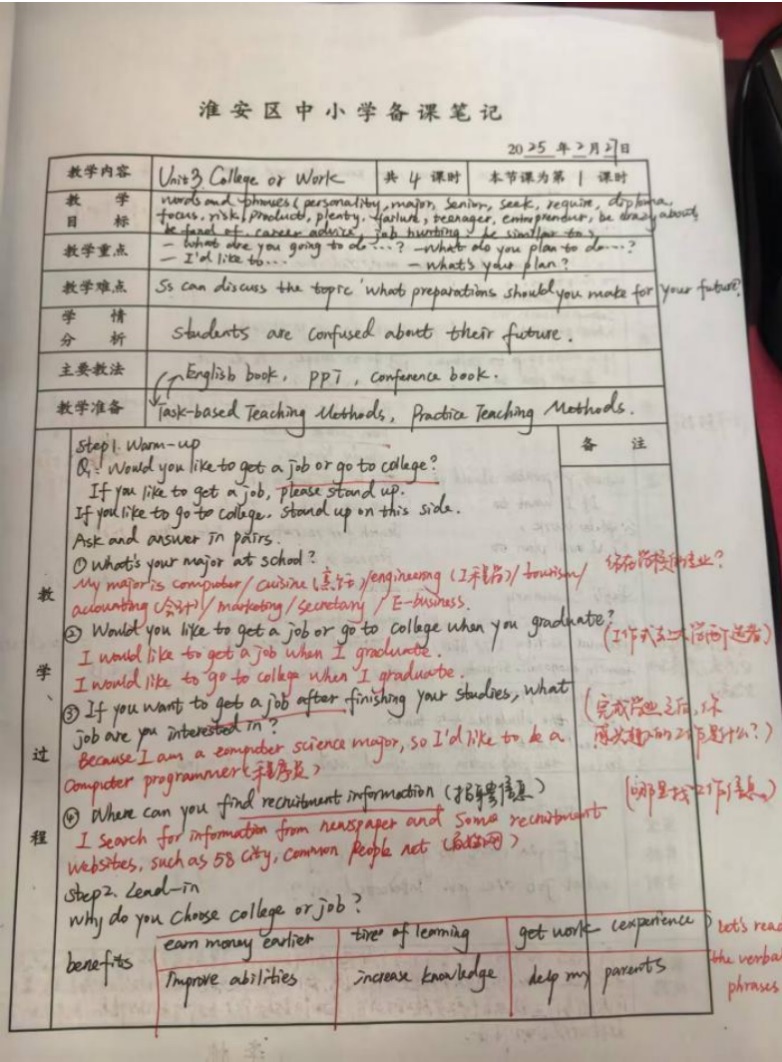 淮安区中小学备课笔记
2025年2月27日
教学内容 Unit 3 College or Work 共 4 课时 本节课为第 1 课时
教学目标 words and phrases (personality, major, senior, seek, require, diploma,
focus, risk, product, plenty, failure, teenager, entrepreneur, be crazy about,
be fond of, career advice, job hunting, be similar to)
教学重点 — What are you going to do ...? — What do you plan to do ...?
— I'd like to ... — What's your plan?
教学难点 Ss can discuss the topic 'what preparations should you make for your future?
学情分析 Students are confused about their future.
主要教法 English book, PPT, conference book.
教学准备 Task-based Teaching Methods, Practice Teaching Methods.
教学过程
备注
Step1. Warm-up
Q1: Would you like to get a job or go to college?
If you like to get a job, please stand up.
If you like to go to college, stand up on this side.
Ask and answer in pairs.
① What's your major at school?
My major is computer / cuisine (烹饪) / engineering (工程) / tourism /
你在学校的专业?
accounting (会计) / marketing / secretary / E-business.
② Would you like to get a job or go to college when you graduate?
I would like to get a job when I graduate.
I would like to go to college when I graduate.
③ If you want to get a job after finishing your studies, what
job are you interested in?
(完成学业之后,你
感兴趣的工作是什么?)
Because I am a computer science major, so I'd like to be a
Computer programmer (程序员)
④ Where can you find recruitment information (招聘信息)
(哪里找工作信息)
I search for information from newspaper and some recruitment
websites, such as 58 city, Common People net (百姓网)
Step2. Lead-in
Why do you choose college or job?
benefits
earn money earlier tire of learning get work (experience)
Improve abilities increase knowledge help my parents
Let's read
the verbal
phrases